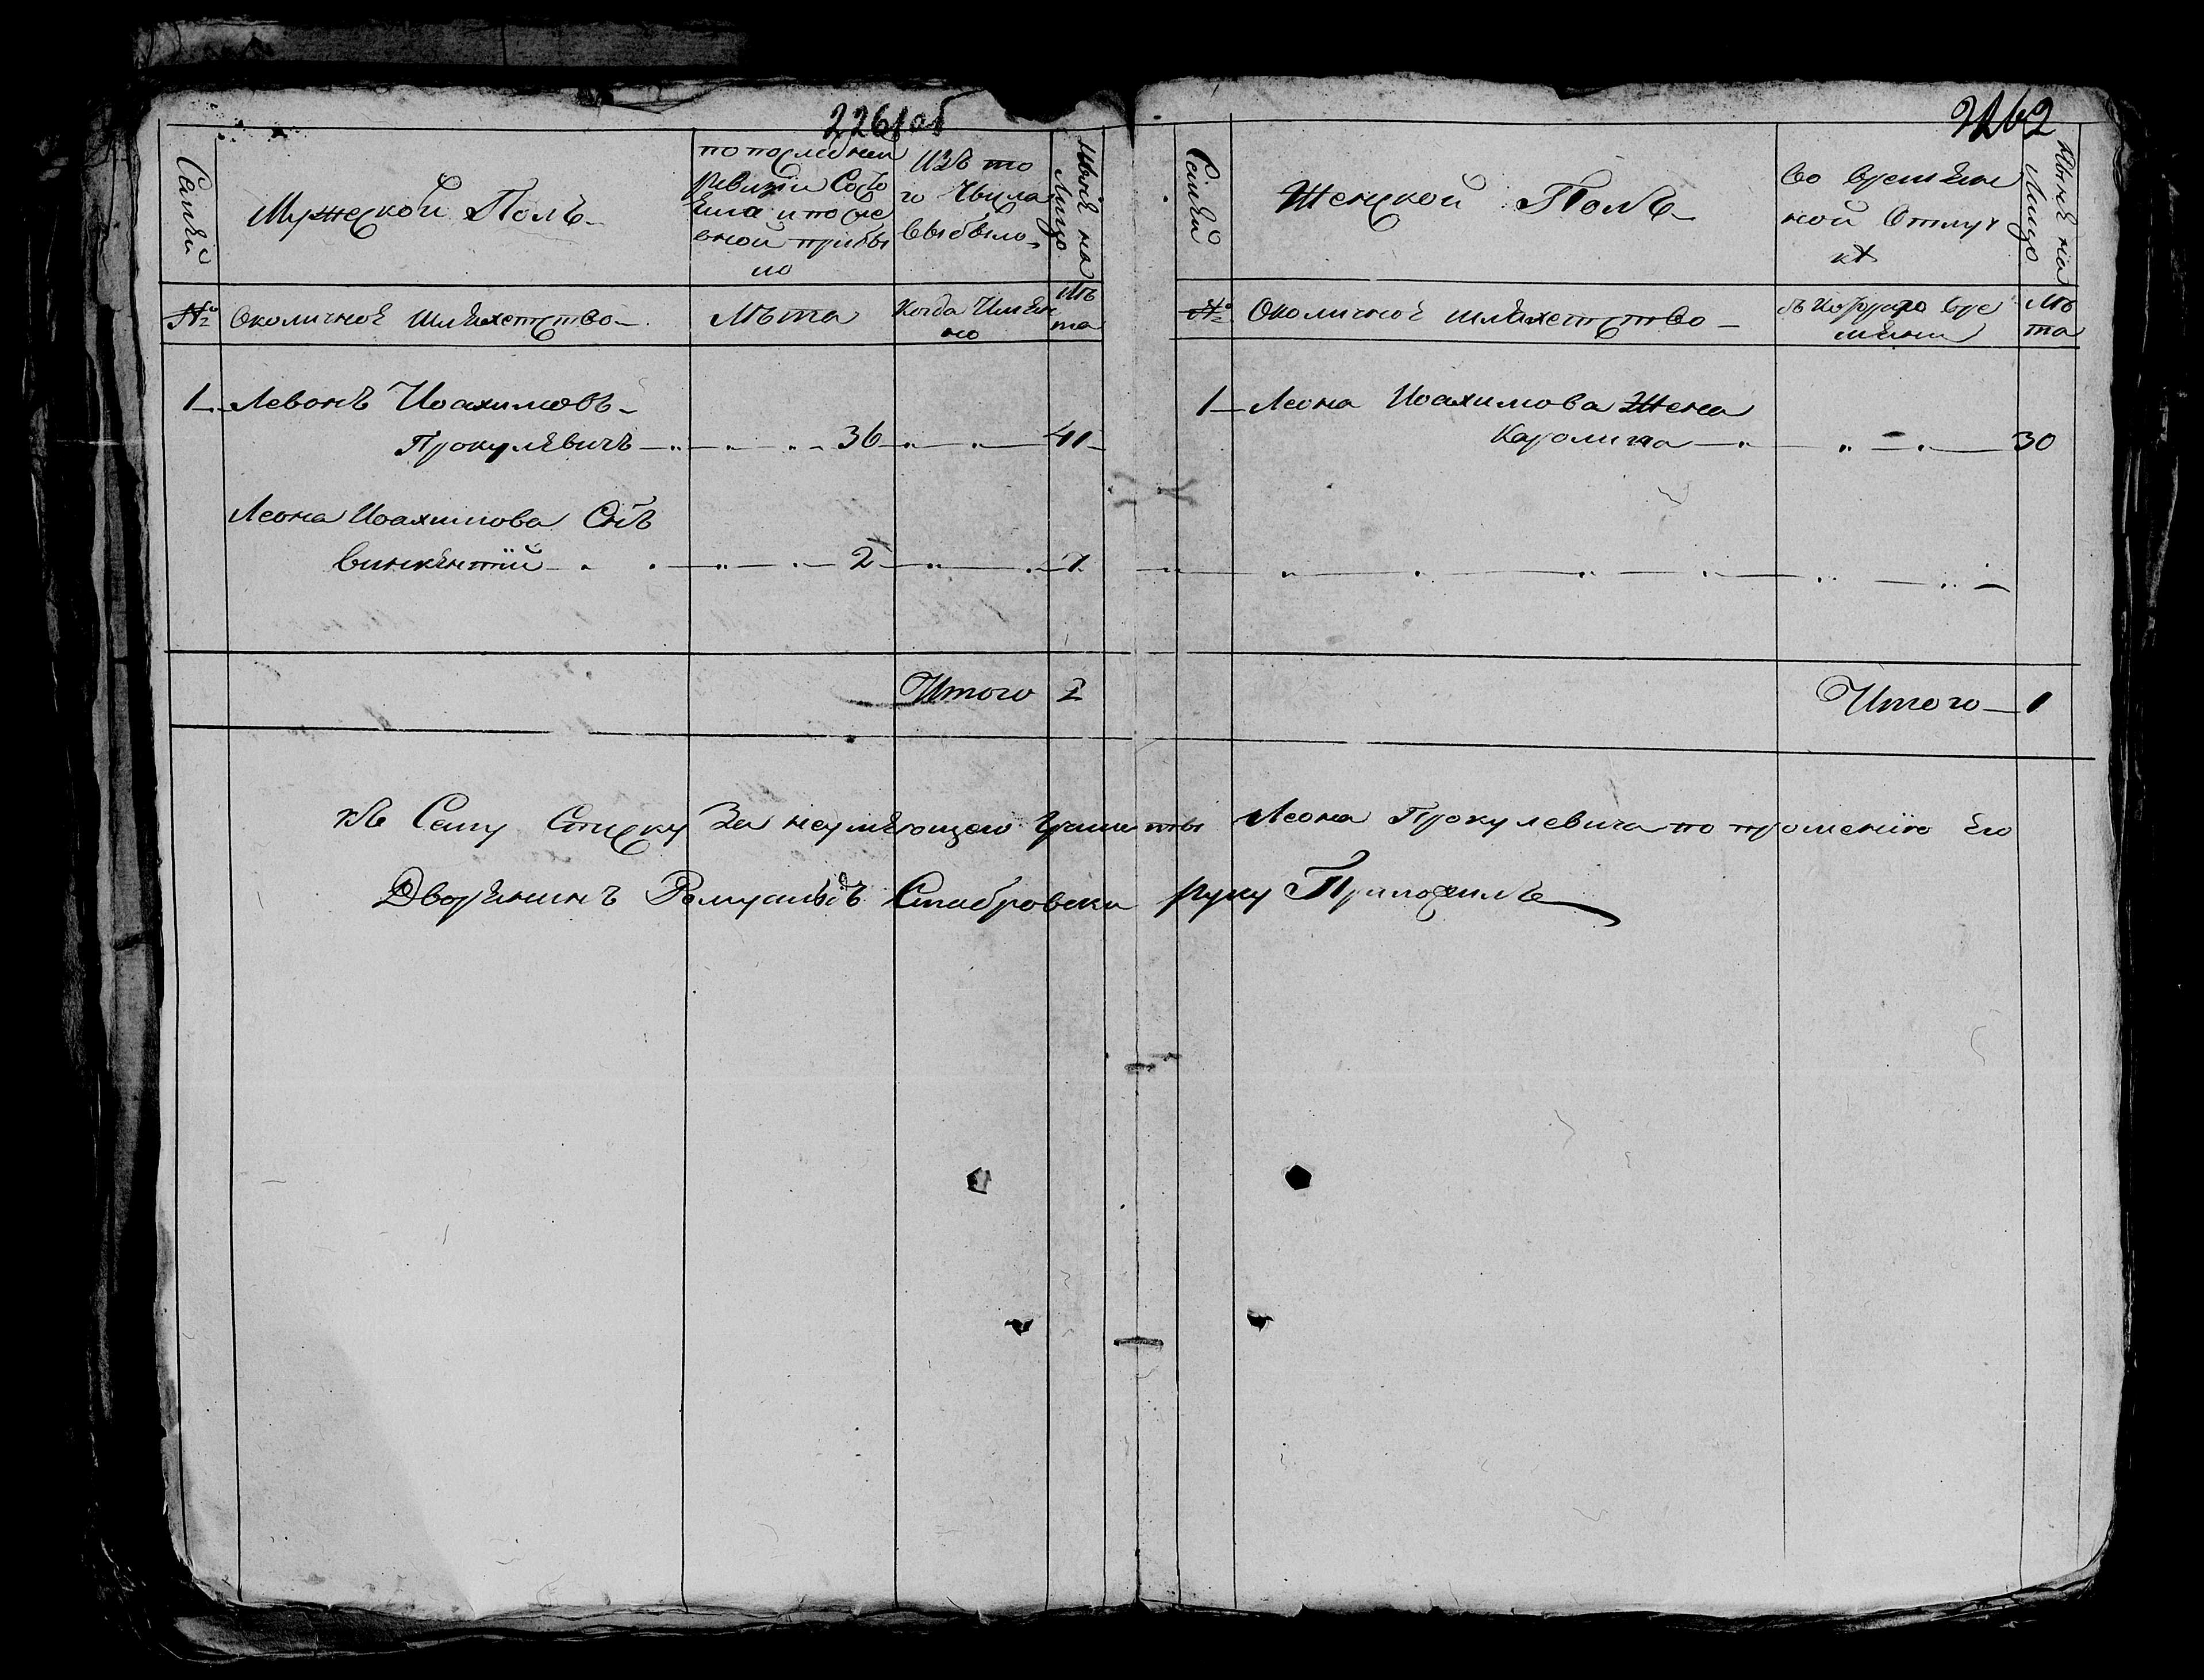 2261 об
2262
Семьи
Мужеской Полъ
по последней
ревизіи Состо
яла и после
оной прибы
ло
Изъ то
го Числа
выбыло
Ныне на
Лицо
№
Околичное Шляхетство
Лѣта
Когда Имян
но
Лѣ
та
1 Левонъ Иоахимовъ
Прокулевичъ 36 41
Леона Иоахимова Сынъ
Викентій 2 7
Итого 2
Семьи
Женской Полъ
Во времян
ной Отлуч
кѣ
Ныне на
Лицо
№
Околичное шляхетство
съ Которого вре
мяни
Лѣ
та
1 Леона Иоахимова Жена
Каролина 30
Итого 1
къ Сему Списку За неумеющего Грамоты Леона Прокулевича по прошенію Его
Дворянинъ Ромуальдъ Стабровски руку Приложилъ